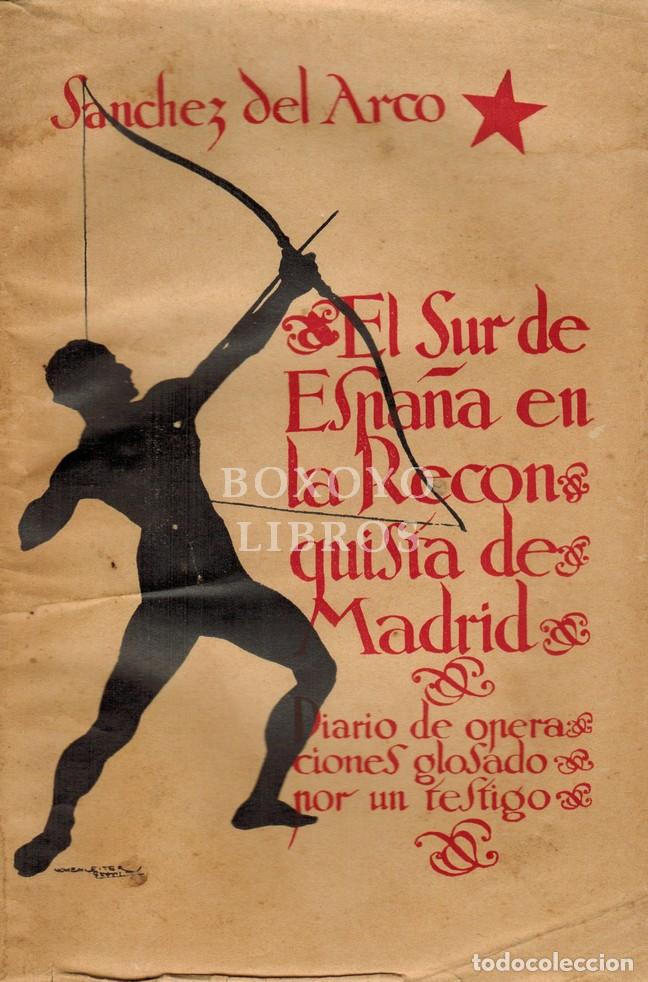 Sanchez del Arco
El Sur de
España en
la Recon
quista de
Madrid
Diario de opera
ciones glosado
por un testigo
BOXOYO
LIBROS
todocoleccion